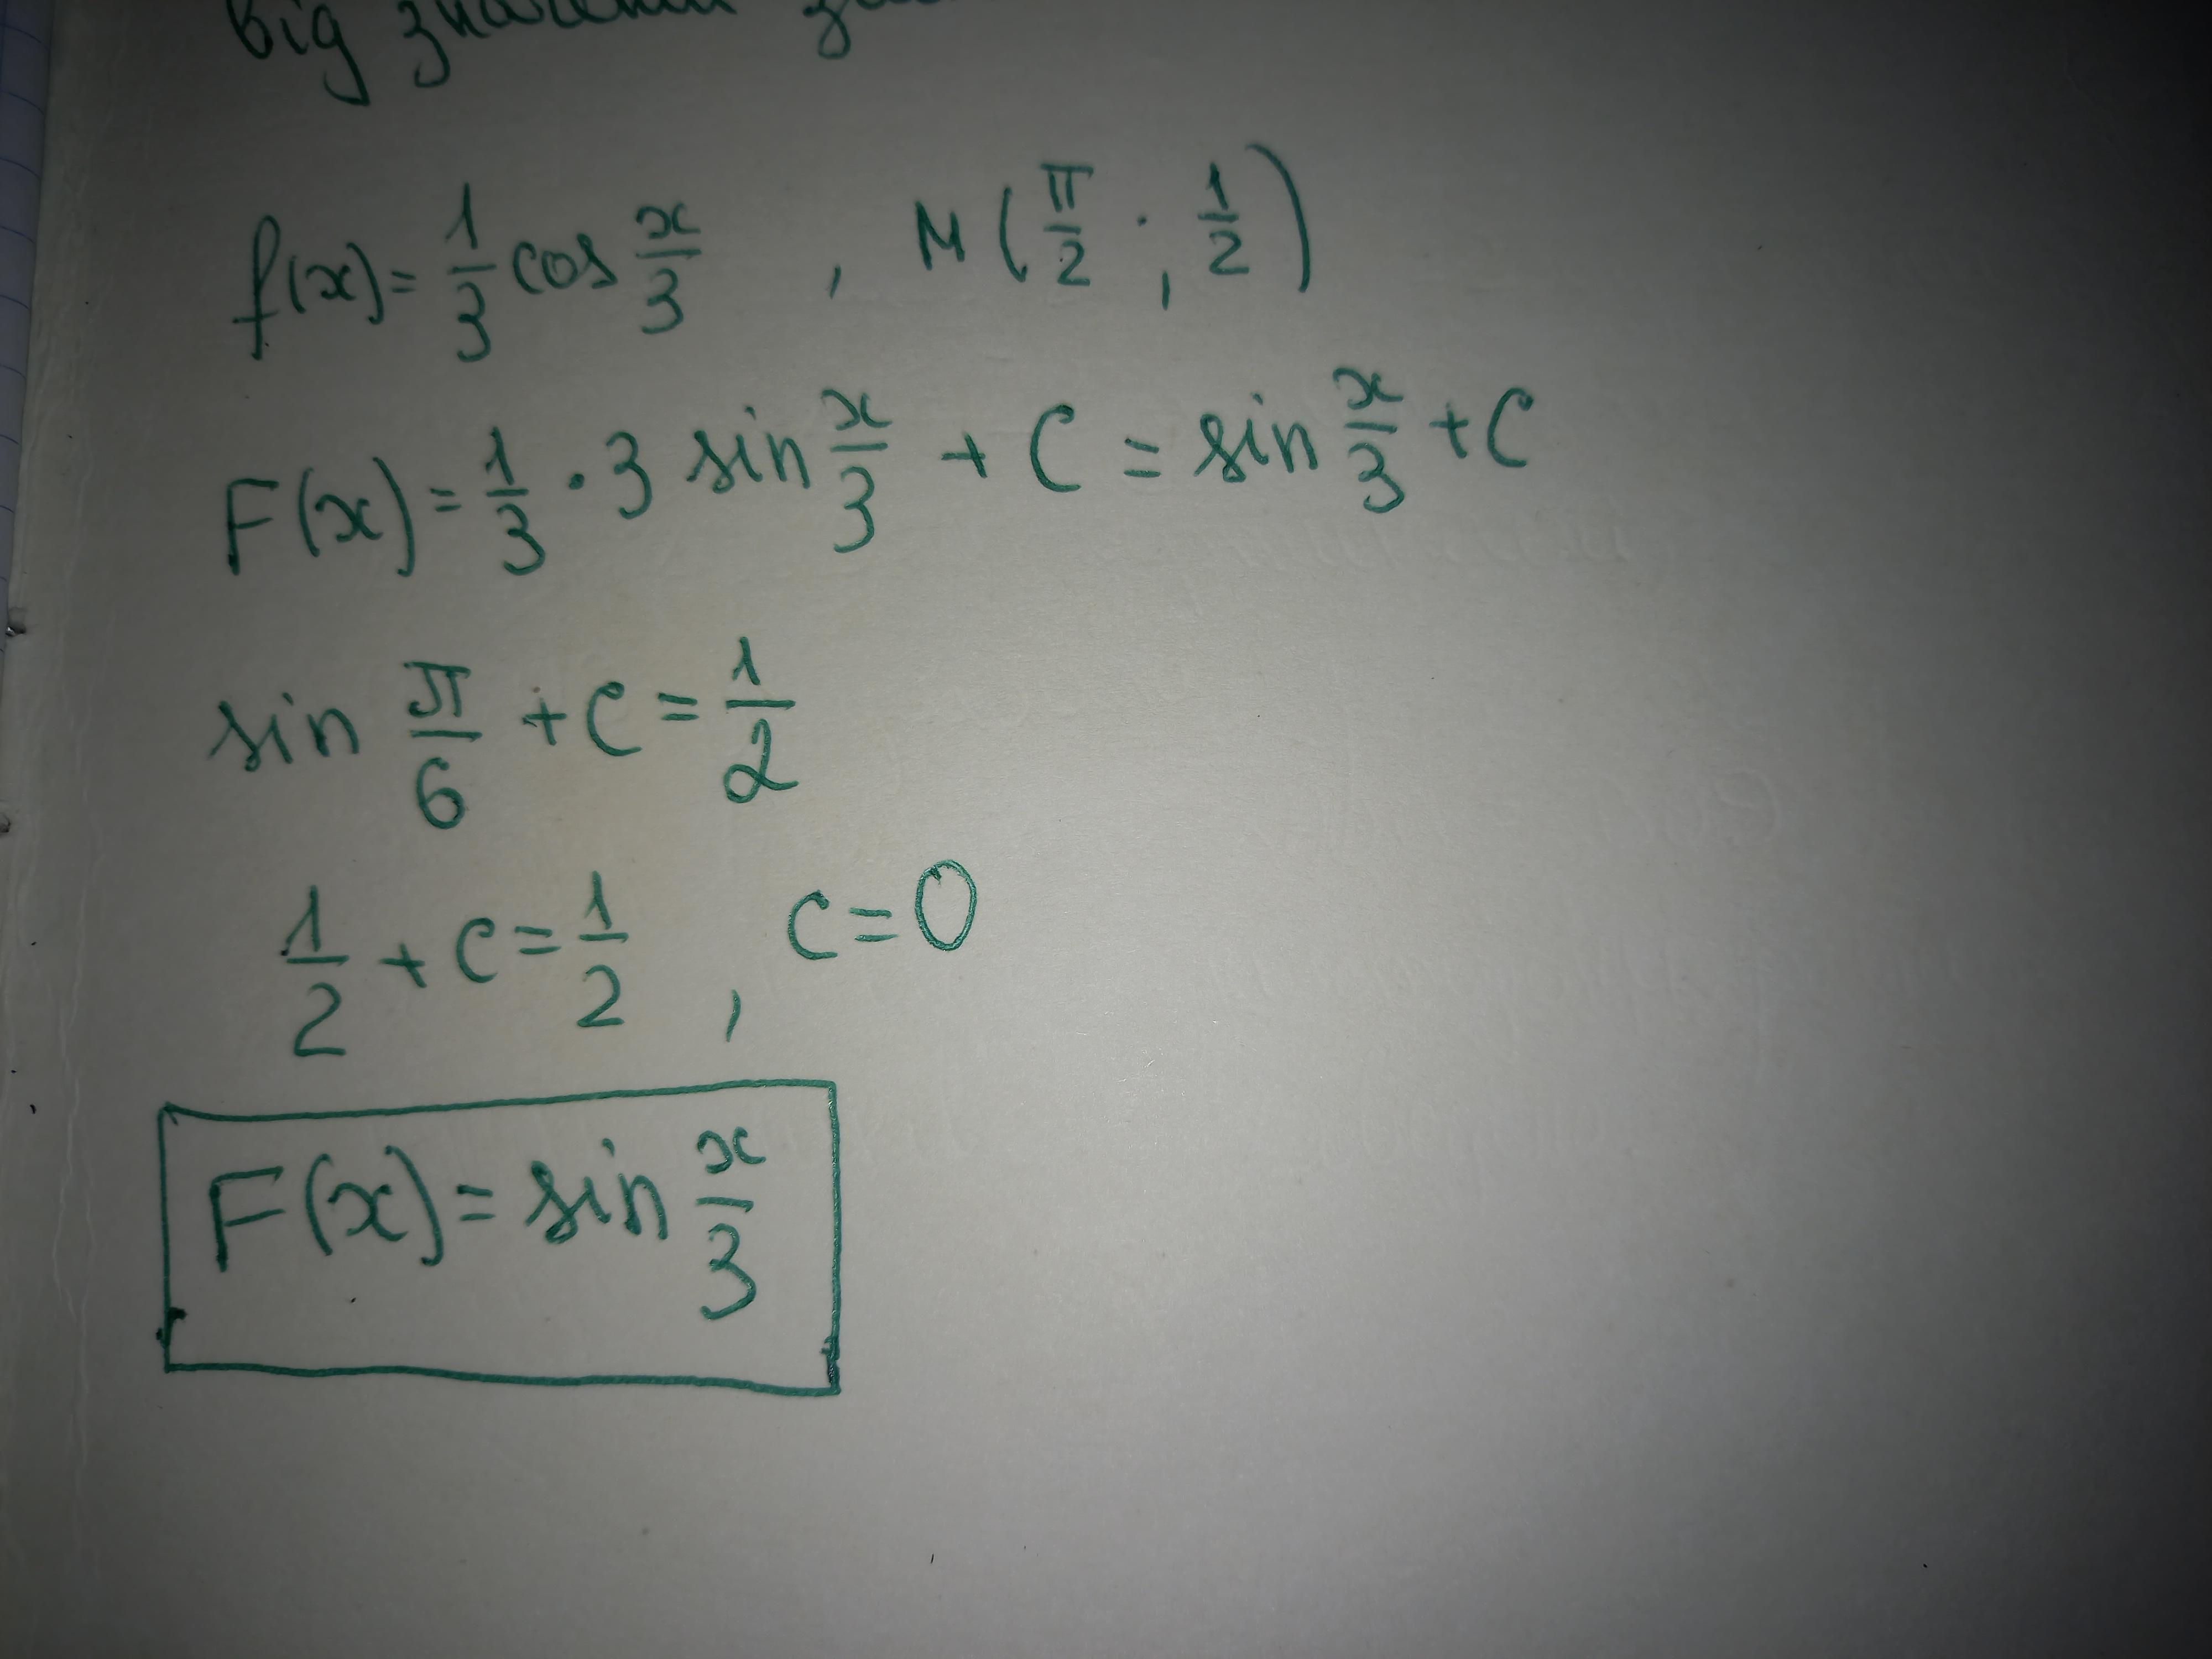 від
f(x) = 1/3 cos x/3 , M(π/2 ; 1/2)
F(x) = 1/3 · 3 sin x/3 + C = sin x/3 + C
sin π/6 + C = 1/2
1/2 + C = 1/2 , C = 0
F(x) = sin x/3